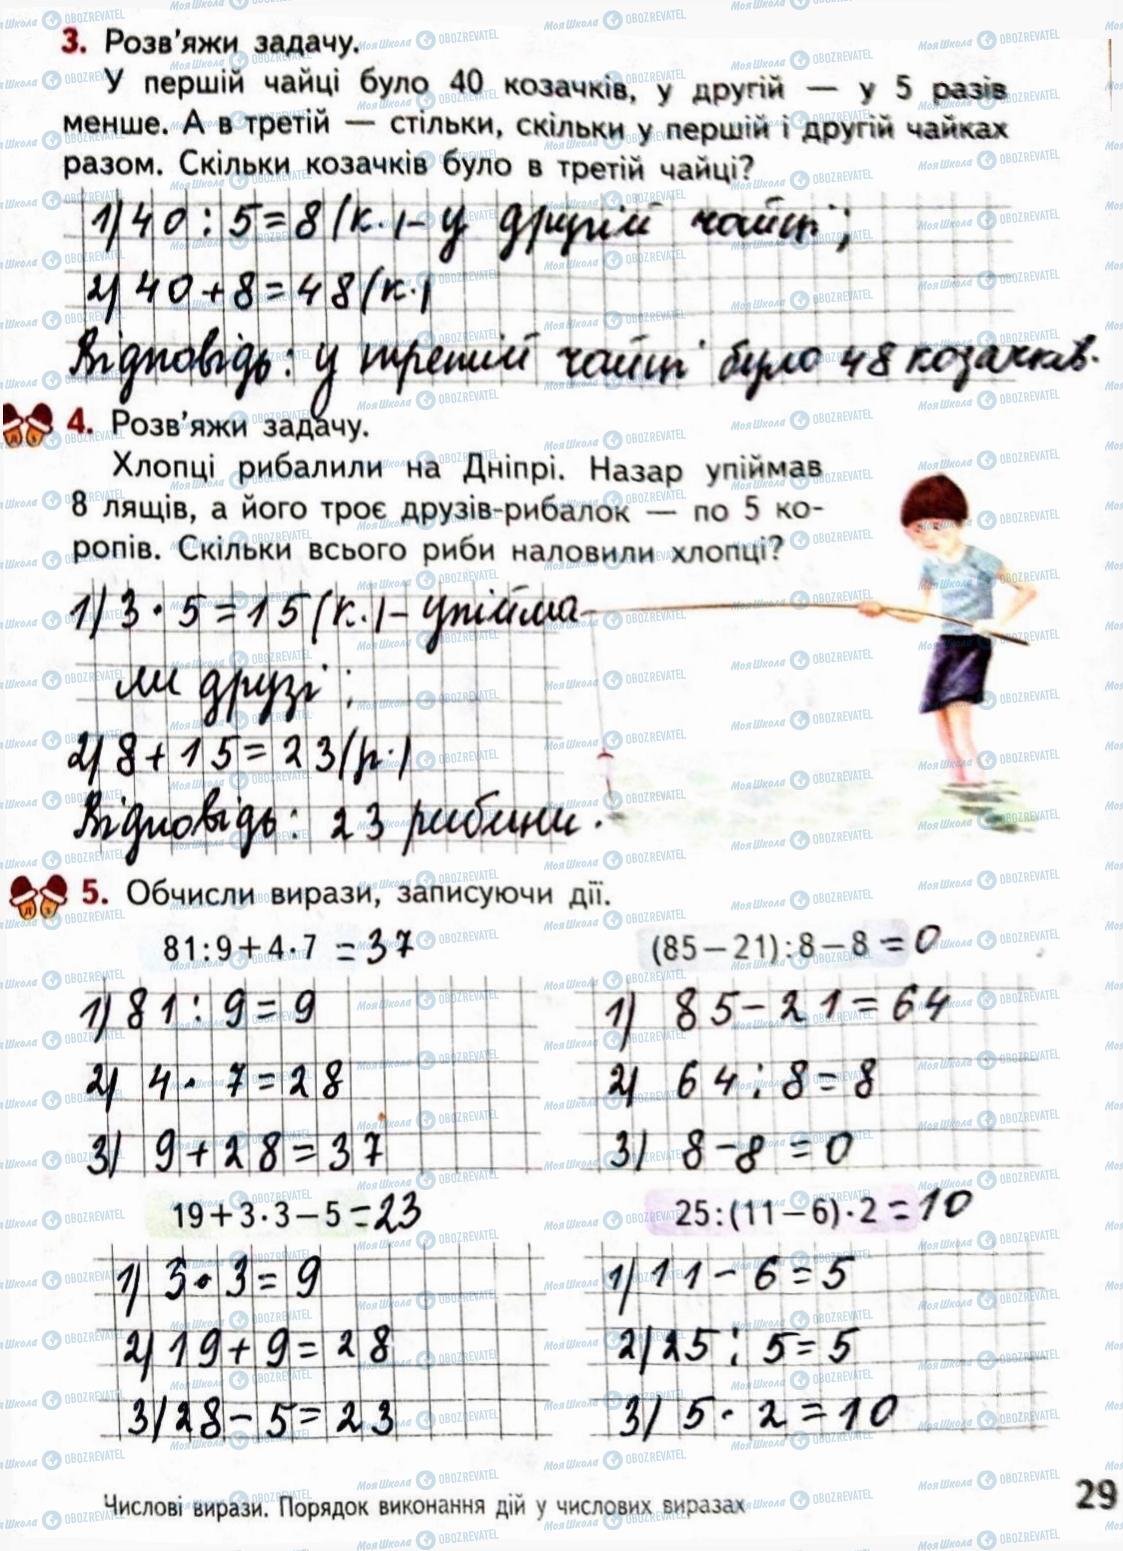 3. Розв'яжи задачу.
У першій чайці було 40 козачків, у другій — у 5 разів
менше. А в третій — стільки, скільки у першій і другій чайках
разом. Скільки козачків було в третій чайці?
1) 40 : 5 = 8 (к.) - у другій чайці;
2) 40 + 8 = 48 (к.)
Відповідь: у третій чайці було 48 козачків.
4. Розв'яжи задачу.
Хлопці рибалили на Дніпрі. Назар упіймав
8 лящів, а його троє друзів-рибалок — по 5 ко-
ропів. Скільки всього риби наловили хлопці?
1) 3 · 5 = 15 (к.) - упійма
ли друзі;
2) 8 + 15 = 23 (р.)
Відповідь: 23 рибини.
5. Обчисли вирази, записуючи дії.
81 : 9 + 4 · 7 = 37
(85 − 21) : 8 − 8 = 0
1) 81 : 9 = 9
1) 85 - 21 = 64
2) 4 · 7 = 28
2) 64 : 8 = 8
3) 9 + 28 = 37
3) 8 - 8 = 0
19 + 3 · 3 − 5 = 23
25 : (11 − 6) · 2 = 10
1) 3 · 3 = 9
1) 11 - 6 = 5
2) 19 + 9 = 28
2) 25 : 5 = 5
3) 28 - 5 = 23
3) 5 · 2 = 10
Числові вирази. Порядок виконання дій у числових виразах
29
Моя Школа OBOZREVATEL